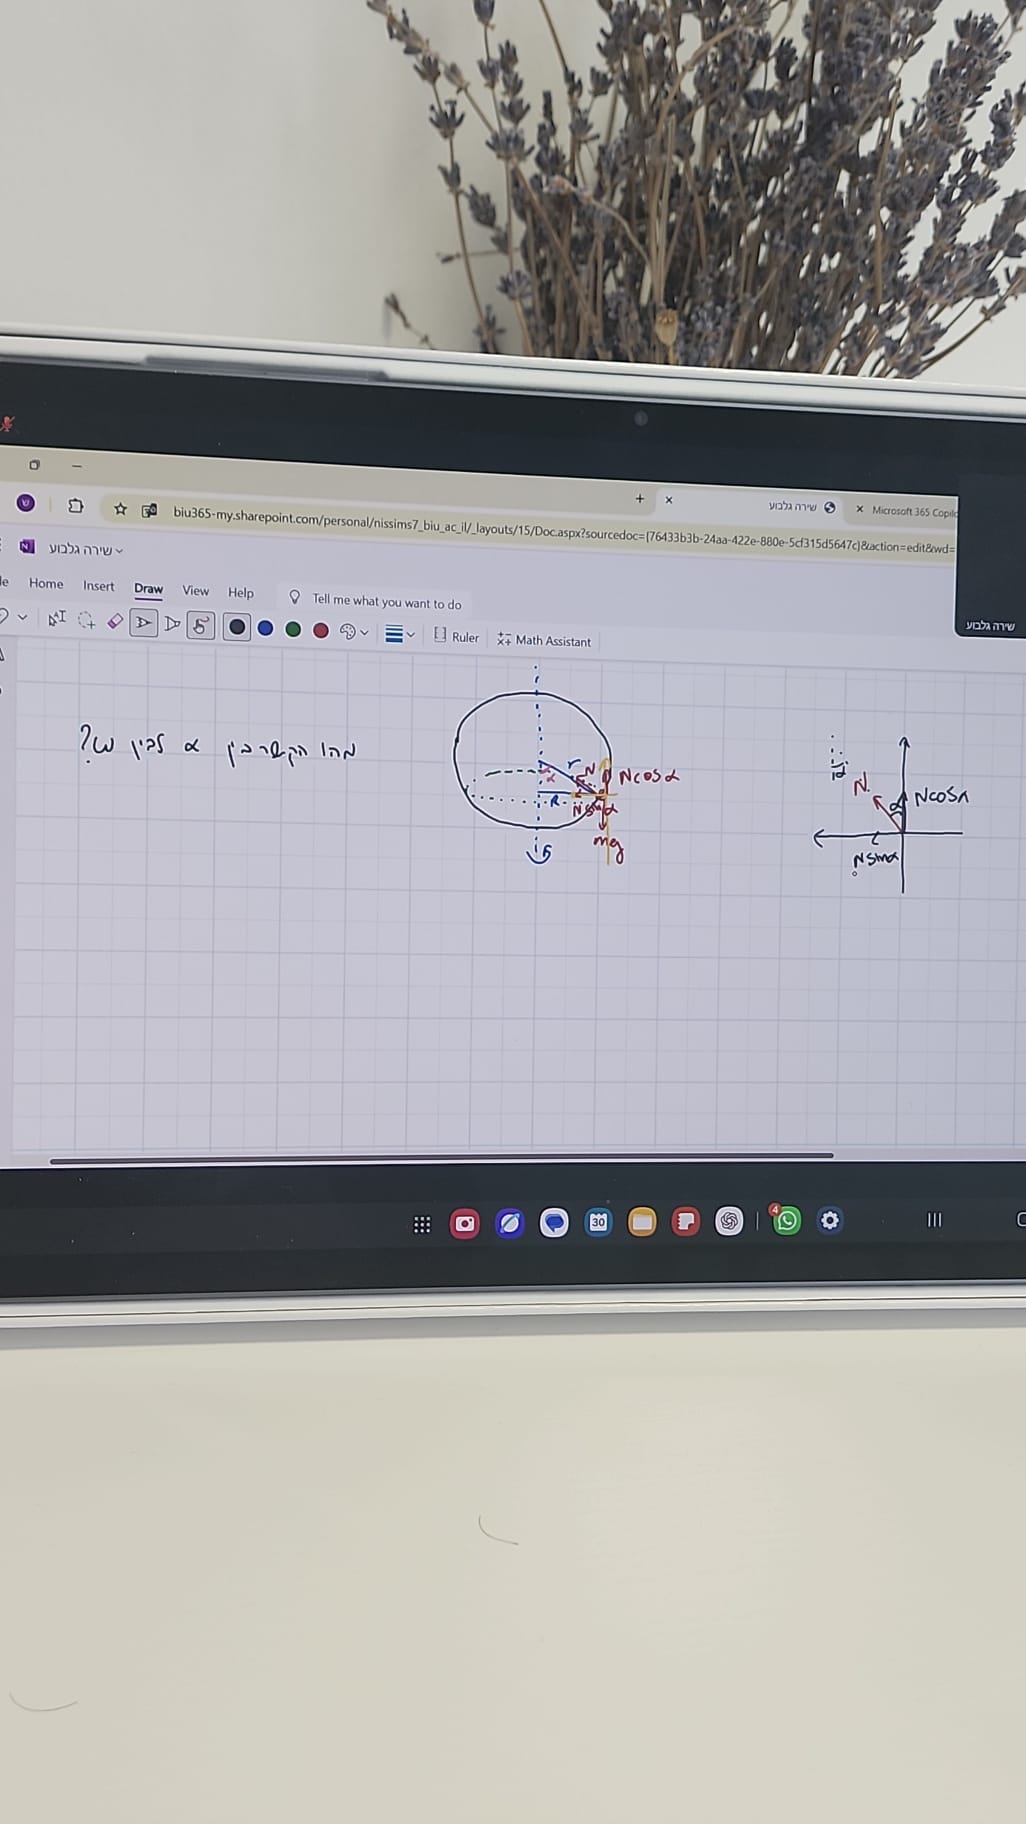 שירה גלבוע
Microsoft 365 Copil
biu365-my.sharepoint.com/personal/nissims7_biu_ac_il/_layouts/15/Doc.aspx?sourcedoc={76433b3b-24aa-422e-880e-5cf315d5647c}&action=edit&wd=
שירה גלבוע
Home Insert Draw View Help Tell me what you want to do
Ruler Math Assistant
שירה גלבוע
מהו הקשר בין α לבין ω?
r
N
N cos α
α
R
N sin α
mg
N
α
N cos α
N sin α
30
4